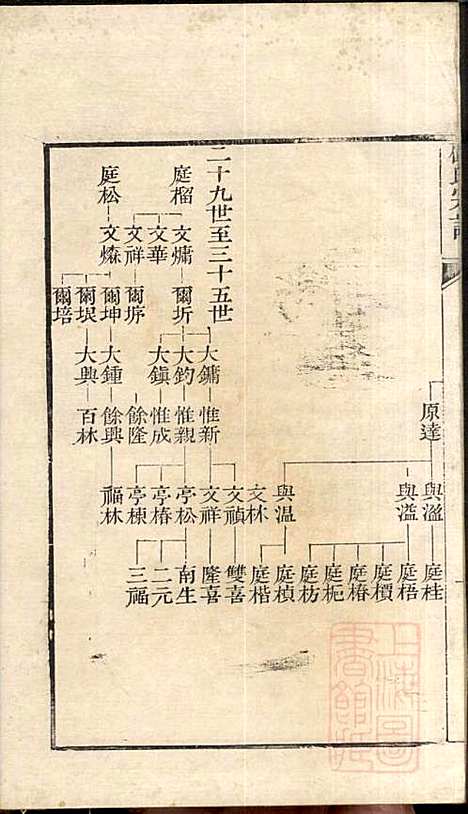 原達
與溋 與溢 與温
庭桂 庭梧 庭檟 庭椿 庭枙 庭枋 庭楨 庭楷
二十九世至三十五世
庭榴 庭松
文煹 文華 文祥 文燊
爾圻 爾垿 爾坤 爾埉 爾培
大鏞 大鈞 大鎭 大鍾 大興
惟新 惟親 惟成 餘隆 餘興 百林
文林 文禎 文祥 亭松 亭椿 亭棟 福林
雙喜 隆喜 南生 二元 三福
上海圖書館藏